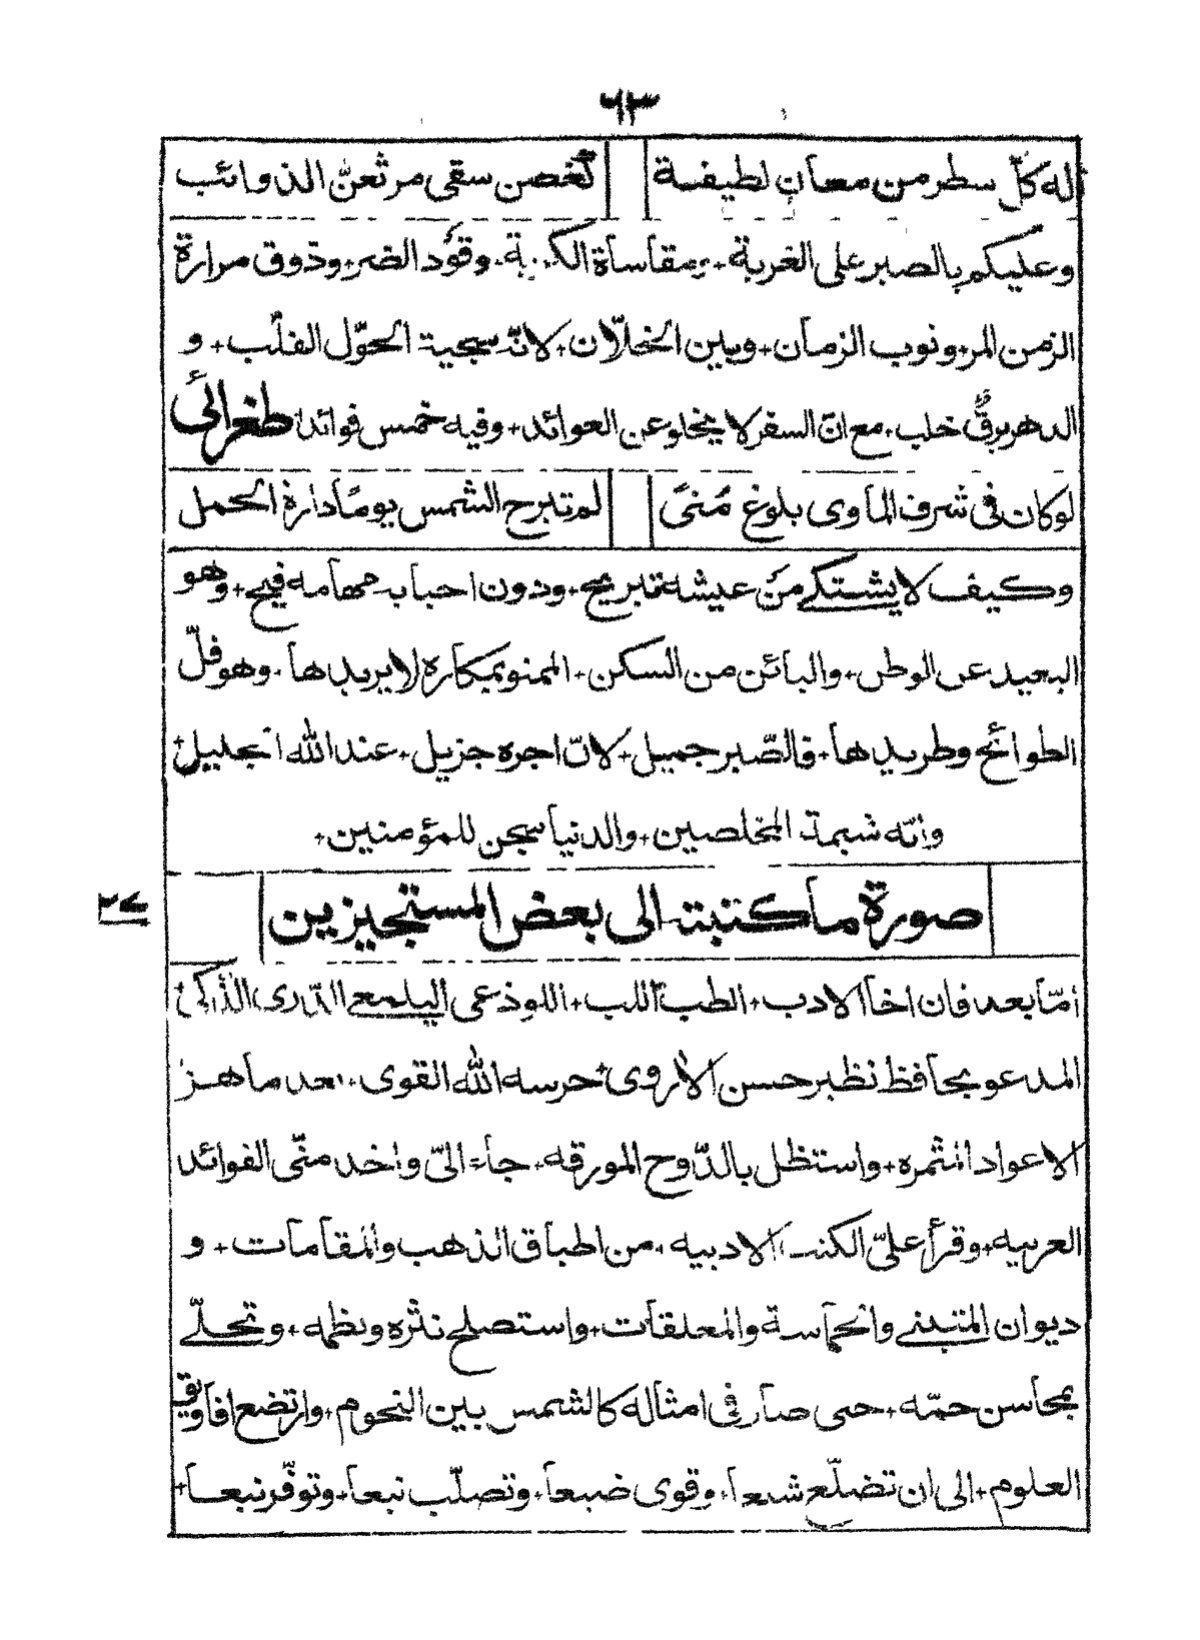 ٦٣
له كلّ سطر من معان لطيفة كغصن سقى مرثعنّ الذوائب
وعليكم بالصبر على الغربة + ومقاساة الكربة + وقؤد الضر + وذوق مرارة
الزمن المر + ونوب الزمان + وبين الخلّان + لانّه سجية الحوّل القلّب + و
الدهر برقٌ خلب + مع انّ السفر لا يخلو عن العوائد + وفيه خمس فوائد طغرائی
لو كان فى شرف المأوى بلوغ مُنىً لم تبرح الشمس يومًا دارة الحمل
وكيف لا يشتكے من عيشه تبريح + ودون احبابه مهامه فيح + وهو
البعيد عن الوطن + والبائن من السكن + الممنو بمكاره لا يريدها + وهو فلّ
الطوائح وطريدها + فالصّبر جميل + لانّ اجره جزيل + عند الله الجليل +
وانّه شيمة المخلصين + والدنيا سجن للمؤمنين +
٣٤
صورة ما كتبته الى بعض المستجيزين
امّا بعد فان اخا الادب + الطب اللب + اللوذعى اليلمعے الدّرى الذّكىّ
المدعو بحافظ نظير حسن الأروى + حرسه الله القوى + بعد ما هز
الاعواد المثمره + واستظل بالدّوح المورقه + جاء الىّ واخد منّى الفوائد
العربيه + وقرأ علىّ الكتب الادبيه + من اطباق الذهب والمقامات + و
ديوان المتنبے والحماسة والمعلقات + واستصلح نثره ونظمه + وتحلّے
بمحاسن جمّه + حتى صار فى امثاله كالشمس بين النجوم + وارتضع افاويق
العلوم + الى ان تضلّع شبعا + وقوى ضبعا + وتصلّب نبعا + وتوفّر نبعا +